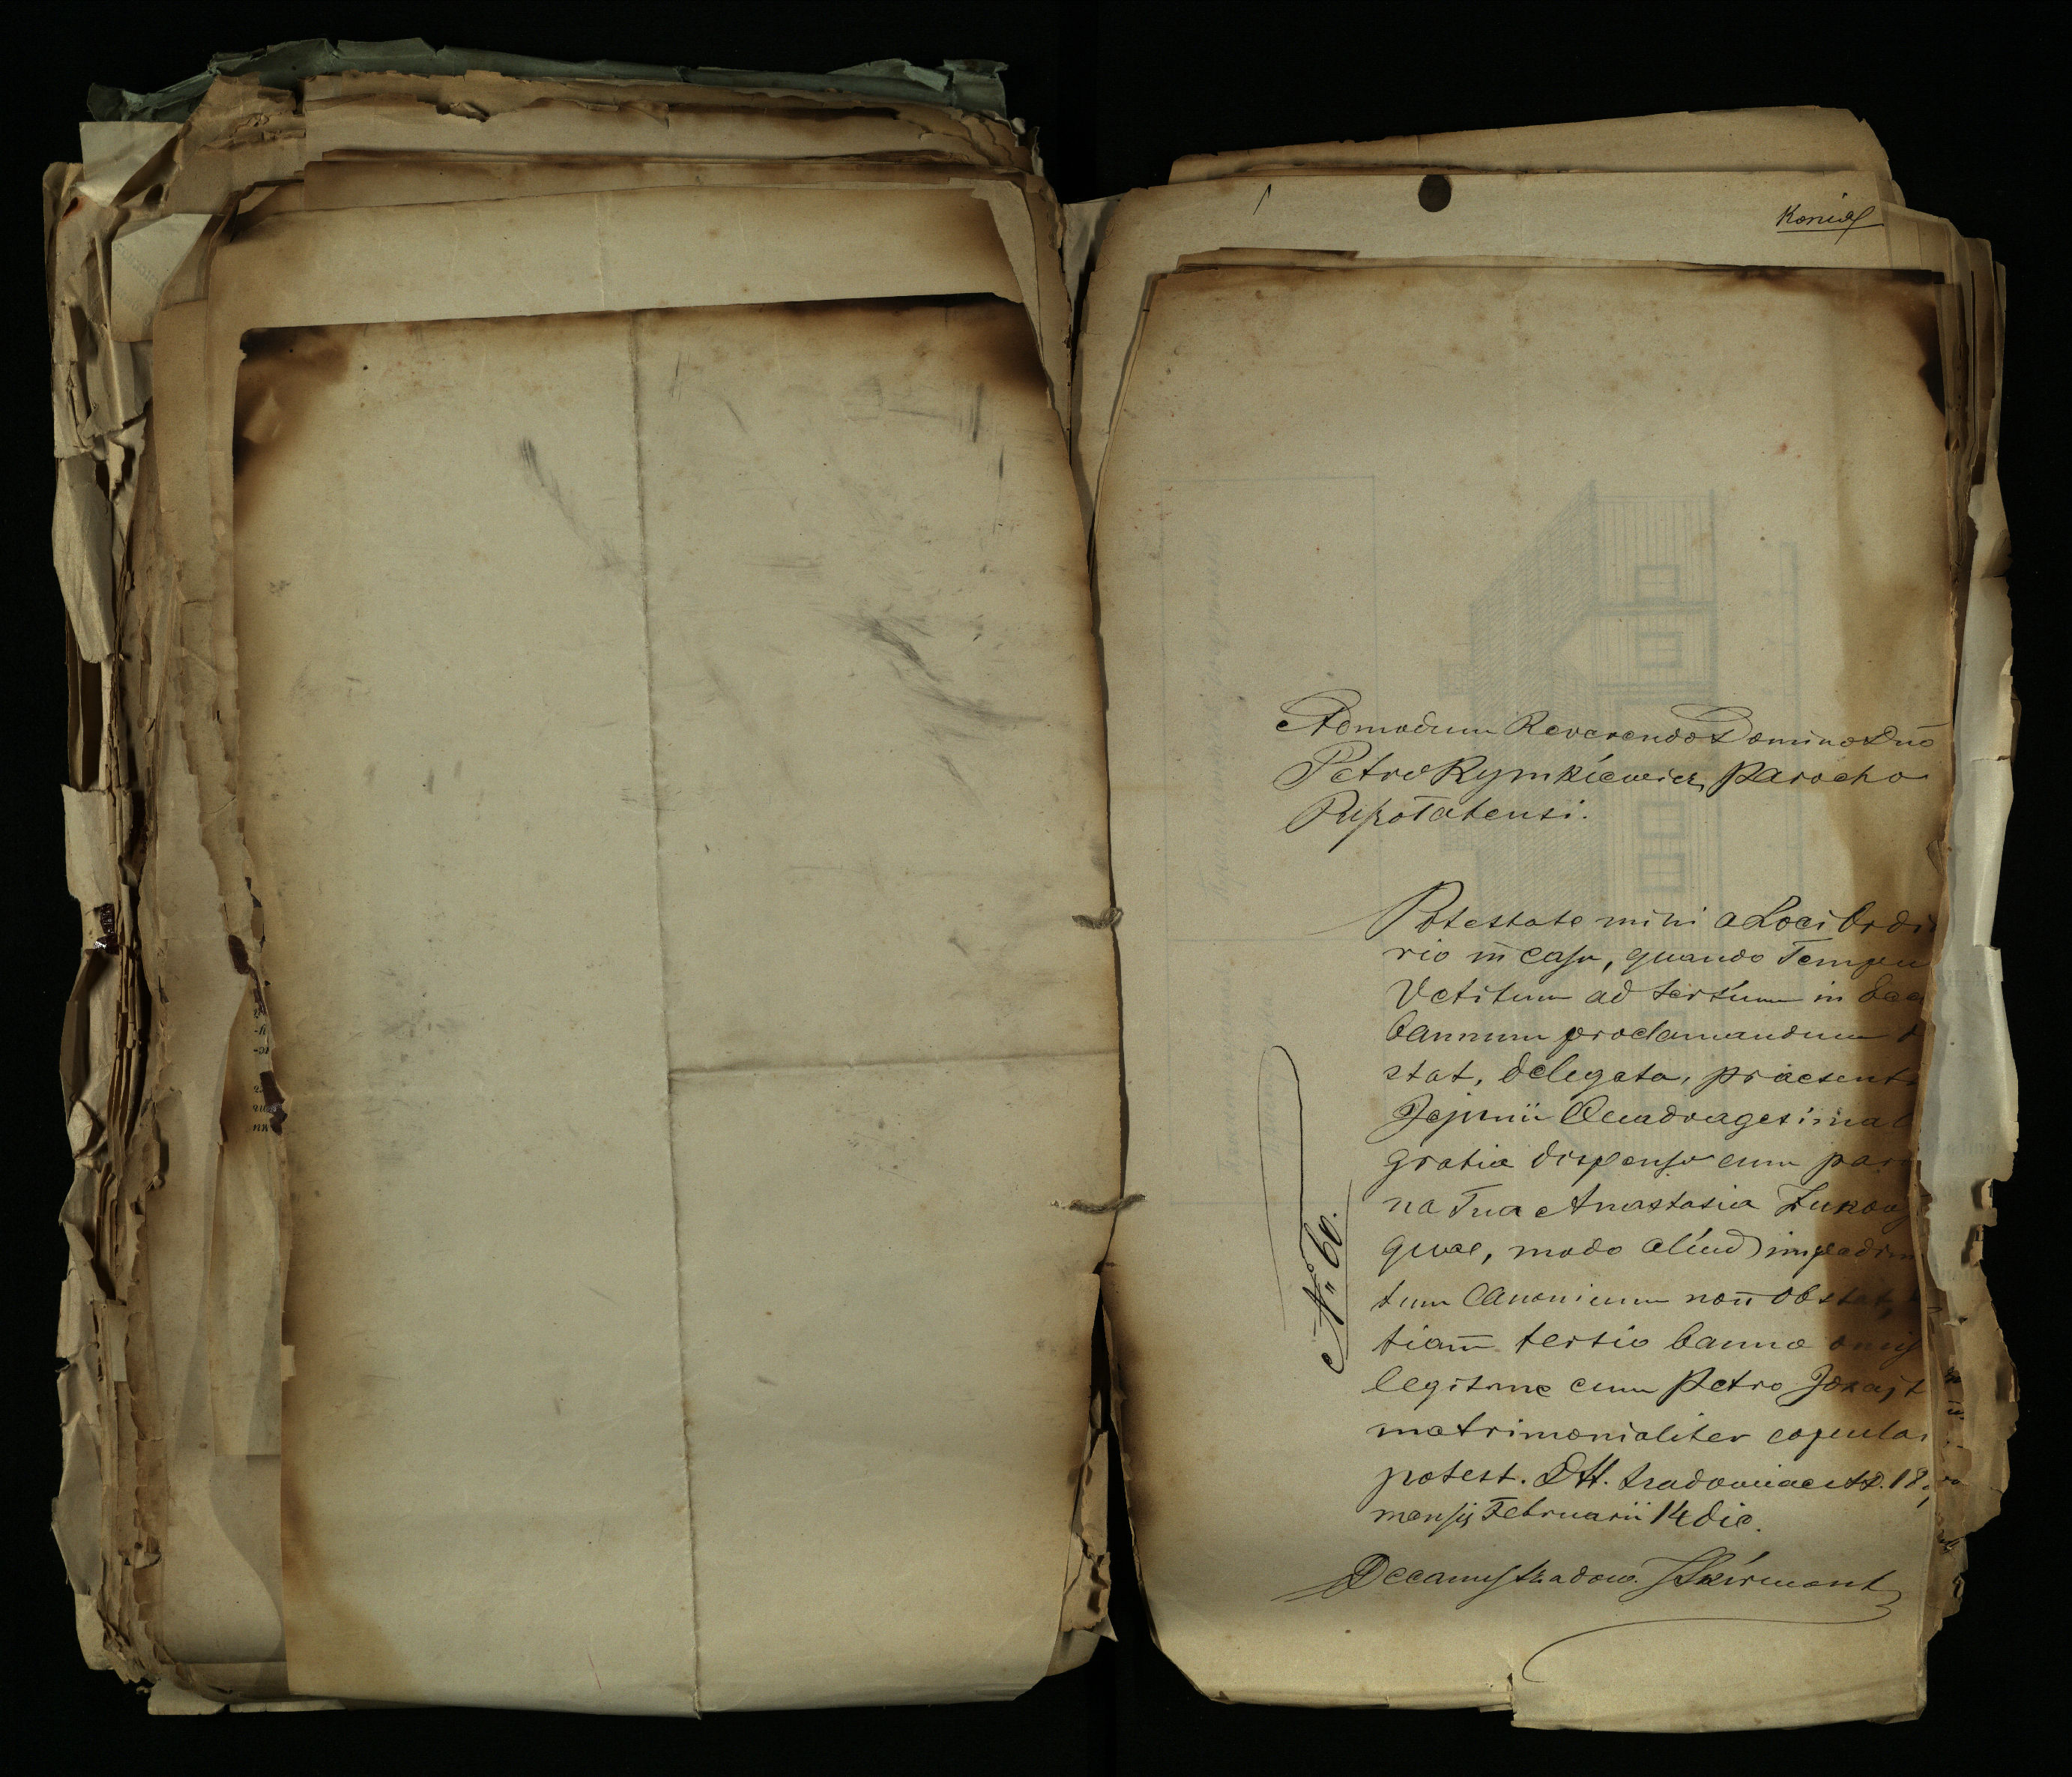 Admodum Reverendo Domino Dnō
Petro Rymkiewicz, Parocho
Potestate mihi a Loci Ordi
rio in casu, quando Tempu
Vetitum ad tertium in
bannum proclamandum
stat, delegata, praesent
Jejunii Quadragesimal
gratia dispenso cum par
na Tua Anastasia
quae, modo aliud impedim
tum Canonicum non obstat,
tiam tertio banno omis
legitime cum Petro
matrimonialiter copular
potest. D#. 18
mensis Februarii 14 die.
Decanus
№ 60.